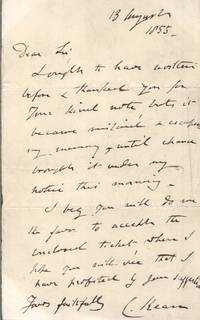 13 August
1855 -
Dear Sir
I ought to have written
before & thanked you for
Your kind note but it
became &
my memory & until chance
brought it under my
notice this morning -
I beg you will do me
the favor to accept the
enclosed ticket where I
hope you will see that I
have profited by your
Yours faithfully
C. Kean